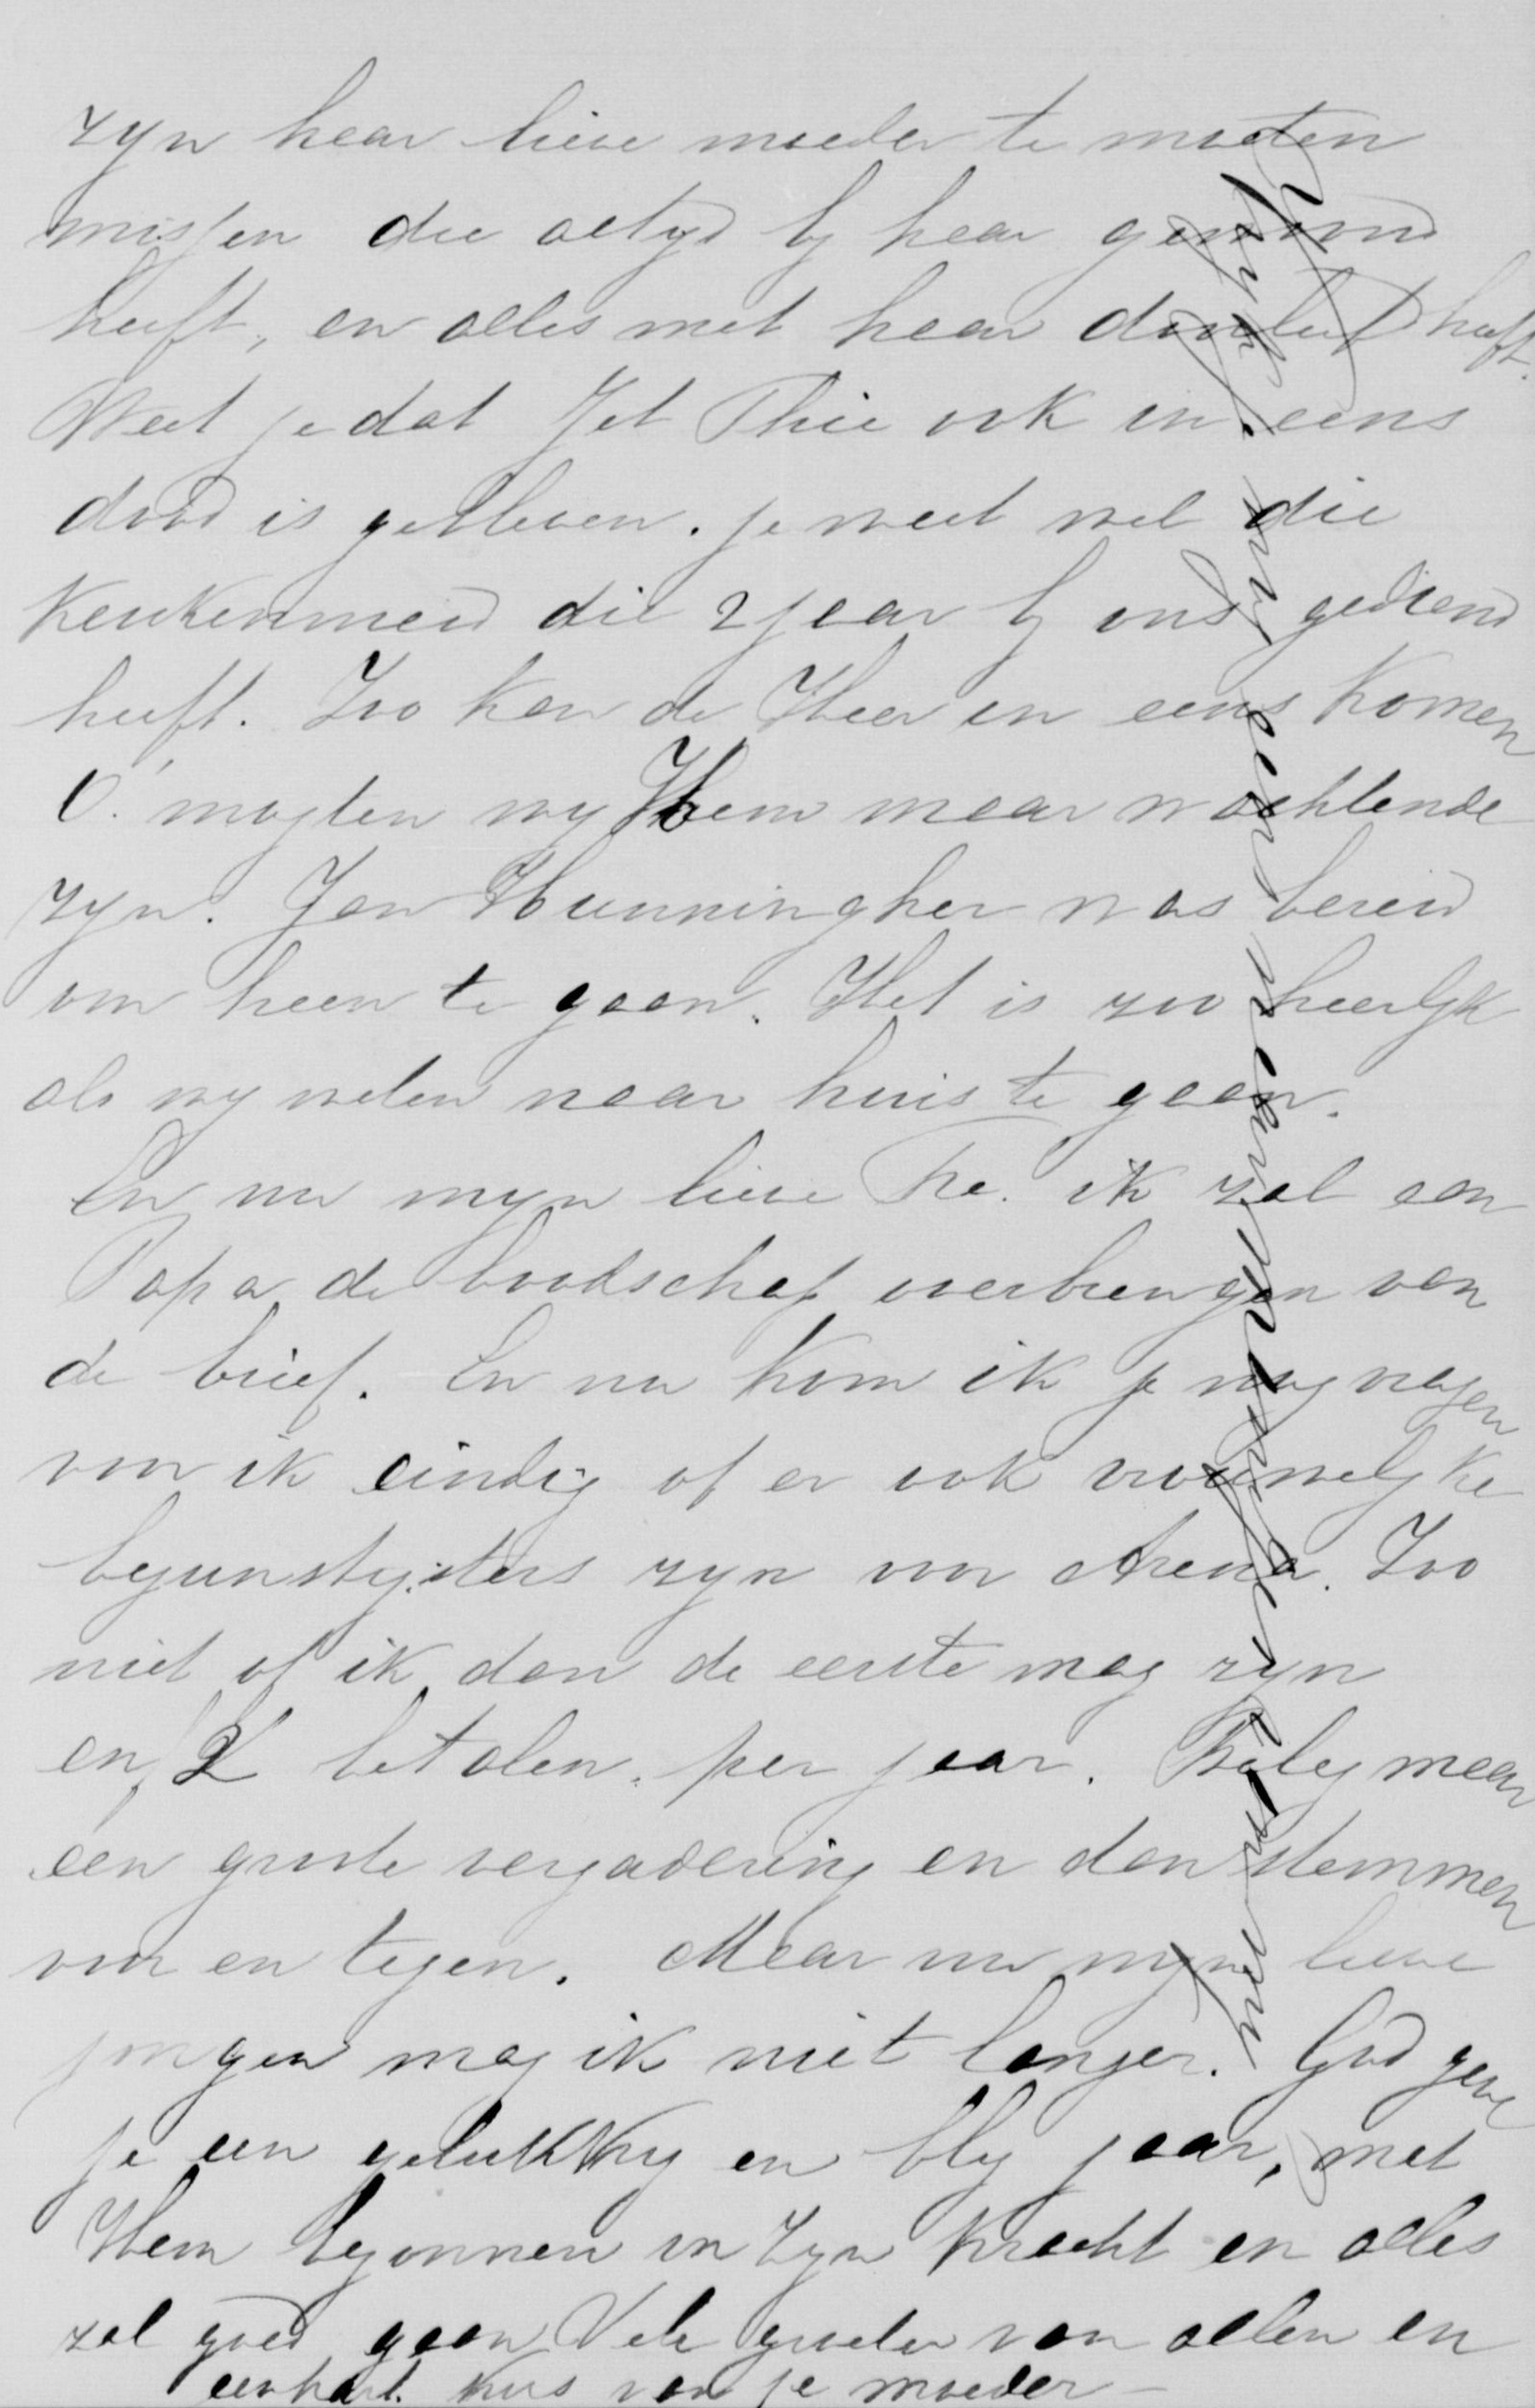 zyn haar lieve moeder te moeten
missen die altyd by haar gewoond
heeft, en alles met haar doorleefd heeft.
Weet je dat Jet Thie ook in eens
dood is gebleven. je weet wel die
Keukenmeid die 2 jaar by ons gediend
heeft. Zoo kan de Heer in eens komen
O! mogten wy Hem maar wachtende
zyn. Jan Hunningher was bereid
om heen te gaan. Het is zoo heerlyk
als wy weten naar huis te gaan.
En nu myn lieve The. ik zal aan
Papa de boodschap overbrengen van
de brief. En nu kom ik je nog vragen
voor ik eindig of er ook vrouwelyke
begunstigsters zyn voor Arena. Zoo
niet of ik dan de eerste mag zyn
en 2 betalen per jaar. Beleg maar
een groote vergadering en dan stemmen
voor en tegen. Maar nu myn lieve
jongen mag ik niet langer. God geve
je een gelukkig en bly jaar, met
Hem begonnen in Zyn kracht en alles
zal goed gaan Vele groeten van allen en
een hart. kus van je moeder